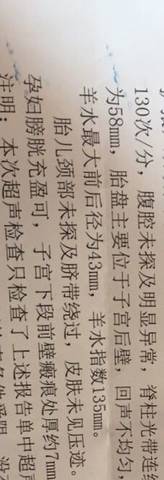 130次/分，腹腔未探及明显异常，脊柱光带连
为58mm，胎盘主要位于子宫后壁，回声不均匀，
羊水最大前后径为43mm，羊水指数135mm。
胎儿颈部未探及脐带绕过，皮肤未见压迹。
孕妇膀胱充盈可，子宫下段前壁瘢痕处厚约7mm
注明：本次超声检查只检查了上述报告单中超